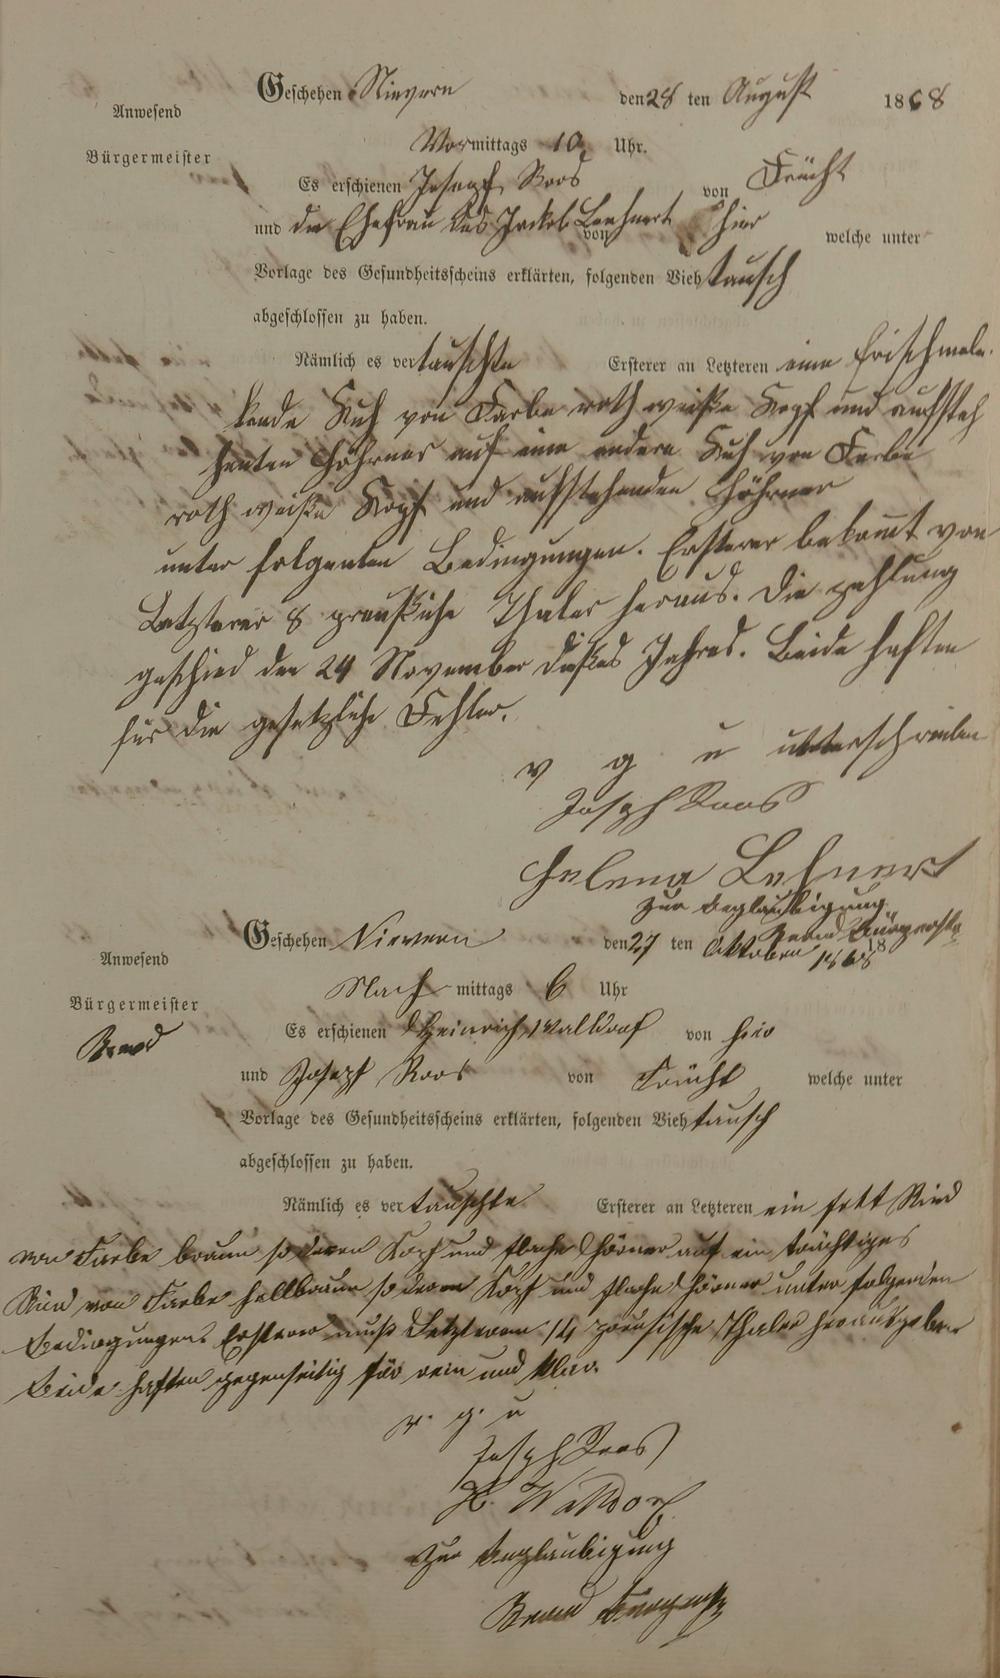 Geschehen Nievern den 28 ten August 1868
Anwesend
Vormittags 10 Uhr.
Bürgermeister
Es erschienen Joseph Roos von Frücht
und die Ehefrau des Jackob Lenhnert von hier welche unter
Vorlage des Gesundheitsscheins erklärten, folgenden Viehtausch
abgeschlossen zu haben.
Nämlich es vertauschte Ersterer an Letzteren eine frischmel-
kende Kuh von Farbe roth weiße Kopf und aufsteh
henten Höhrner auf eine andere Kuh von Farbe
roth weiße Kopf und aufstehenden Höhrner
unter folgenten Bedingungen. Ersterer bekomt von
Letzterer 8 preußiche Thaler heraus. Die zahlung
geschied den 24 November dießes Jahres. Beide haften
für die gesetzliche Fehler.
v g u unterschrieben
Joseph Roos
Helena Lehnert
Zur Beglaubigung
Geschehen Nievern den 27 ten Oktober 1868 18
Anwesend
Nachmittags 6 Uhr
Bürgermeister
Es erschienen Heinrich Walldorf von hier
und Joseph Roos von Frücht welche unter
Vorlage des Gesundheitsscheins erklärten, folgenden Viehtausch
abgeschlossen zu haben.
Nämlich es vertauschte Ersterer an Letzteren ein fett Rind
von Farbe braun so deren Kopf und flache Hörner auf ein trächtiges
Rind von Farbe hellbraun so deren Kopf und flache Hörner unter folgenden
Bedingungen Ersterer muß Letzterem 14 preusische Thaler herausgeben
Beide haften gegenseitig für rein und klar.
v. g. u
Joseph Roos
H. Walldorf
Zur Beglaubigung